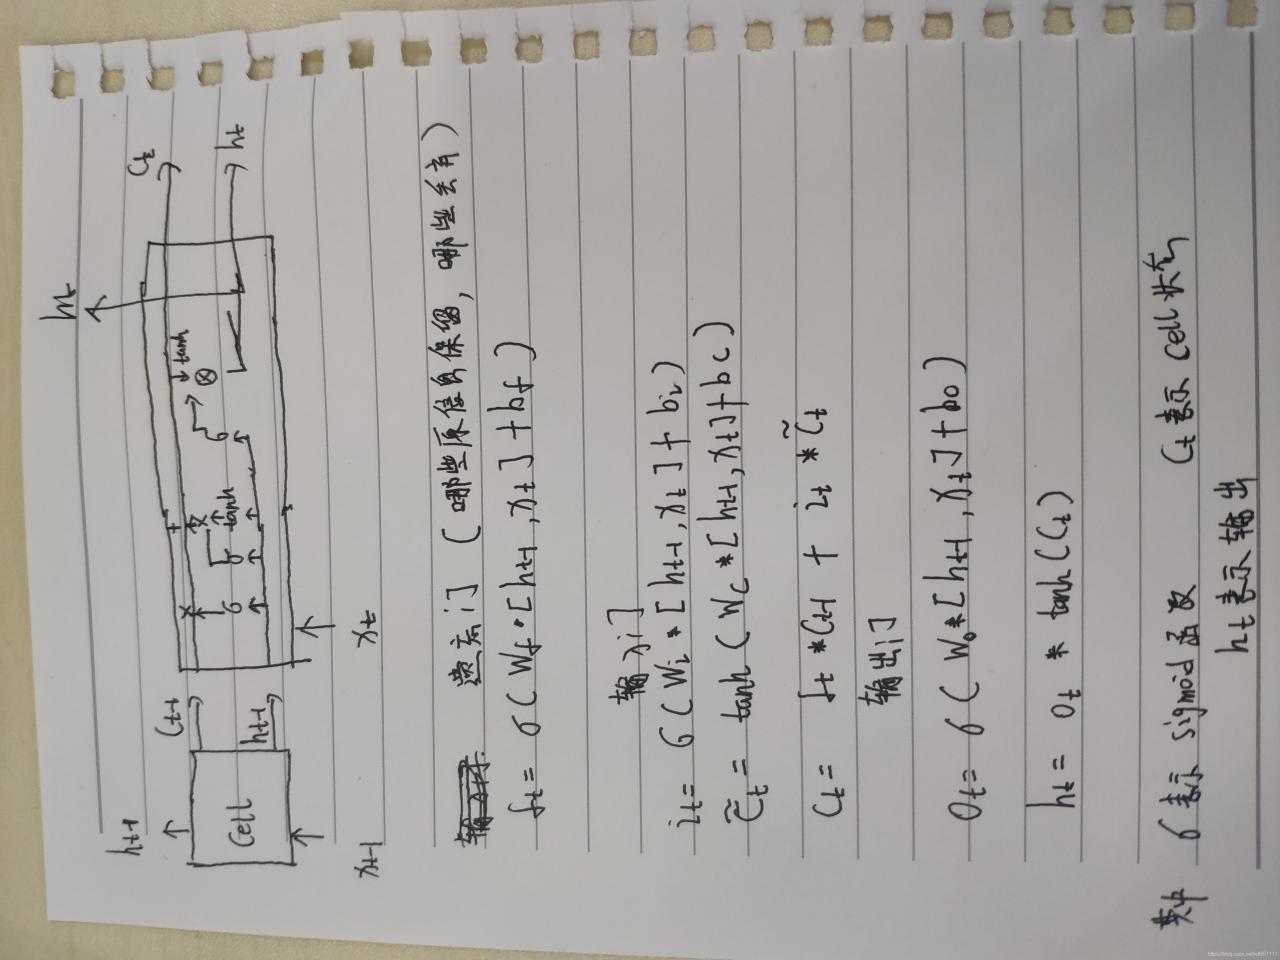 ht-1 ht
Ct-1 Ct
Cell
× + × tanh
σ σ tanh σ ⊗
ht-1 ht
xt-1 xt
遗忘门 (哪些原信息保留, 哪些丢弃)
ft = σ(Wf·[ht-1, xt] + bf)
输入门
it = σ(Wi * [ht-1, xt] + bi)
C̃t = tanh(Wc * [ht-1, xt] + bc)
Ct = ft * Ct-1 + it * C̃t
输出门
Ot = σ(Wo * [ht-1, xt] + bo)
ht = Ot * tanh(Ct)
其中 σ表示 sigmoid 函数 Ct表示 Cell 状态
ht表示输出